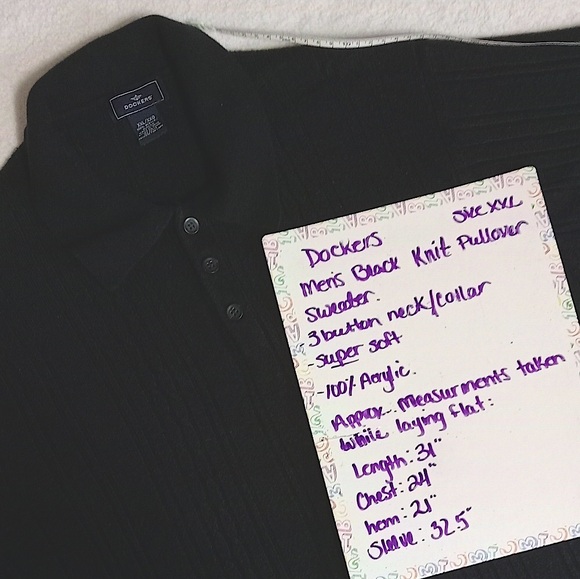 DOCKERS
XXL/XXG
Dockers Size XXL
Men's Black Knit Pullover
Sweater.
3 button neck/collar
-super soft
-100% Acrylic.
Approx. Measurments taken
while laying flat:
Length: 31"
Chest: 24"
hem: 21"
Sleeve: 32.5"